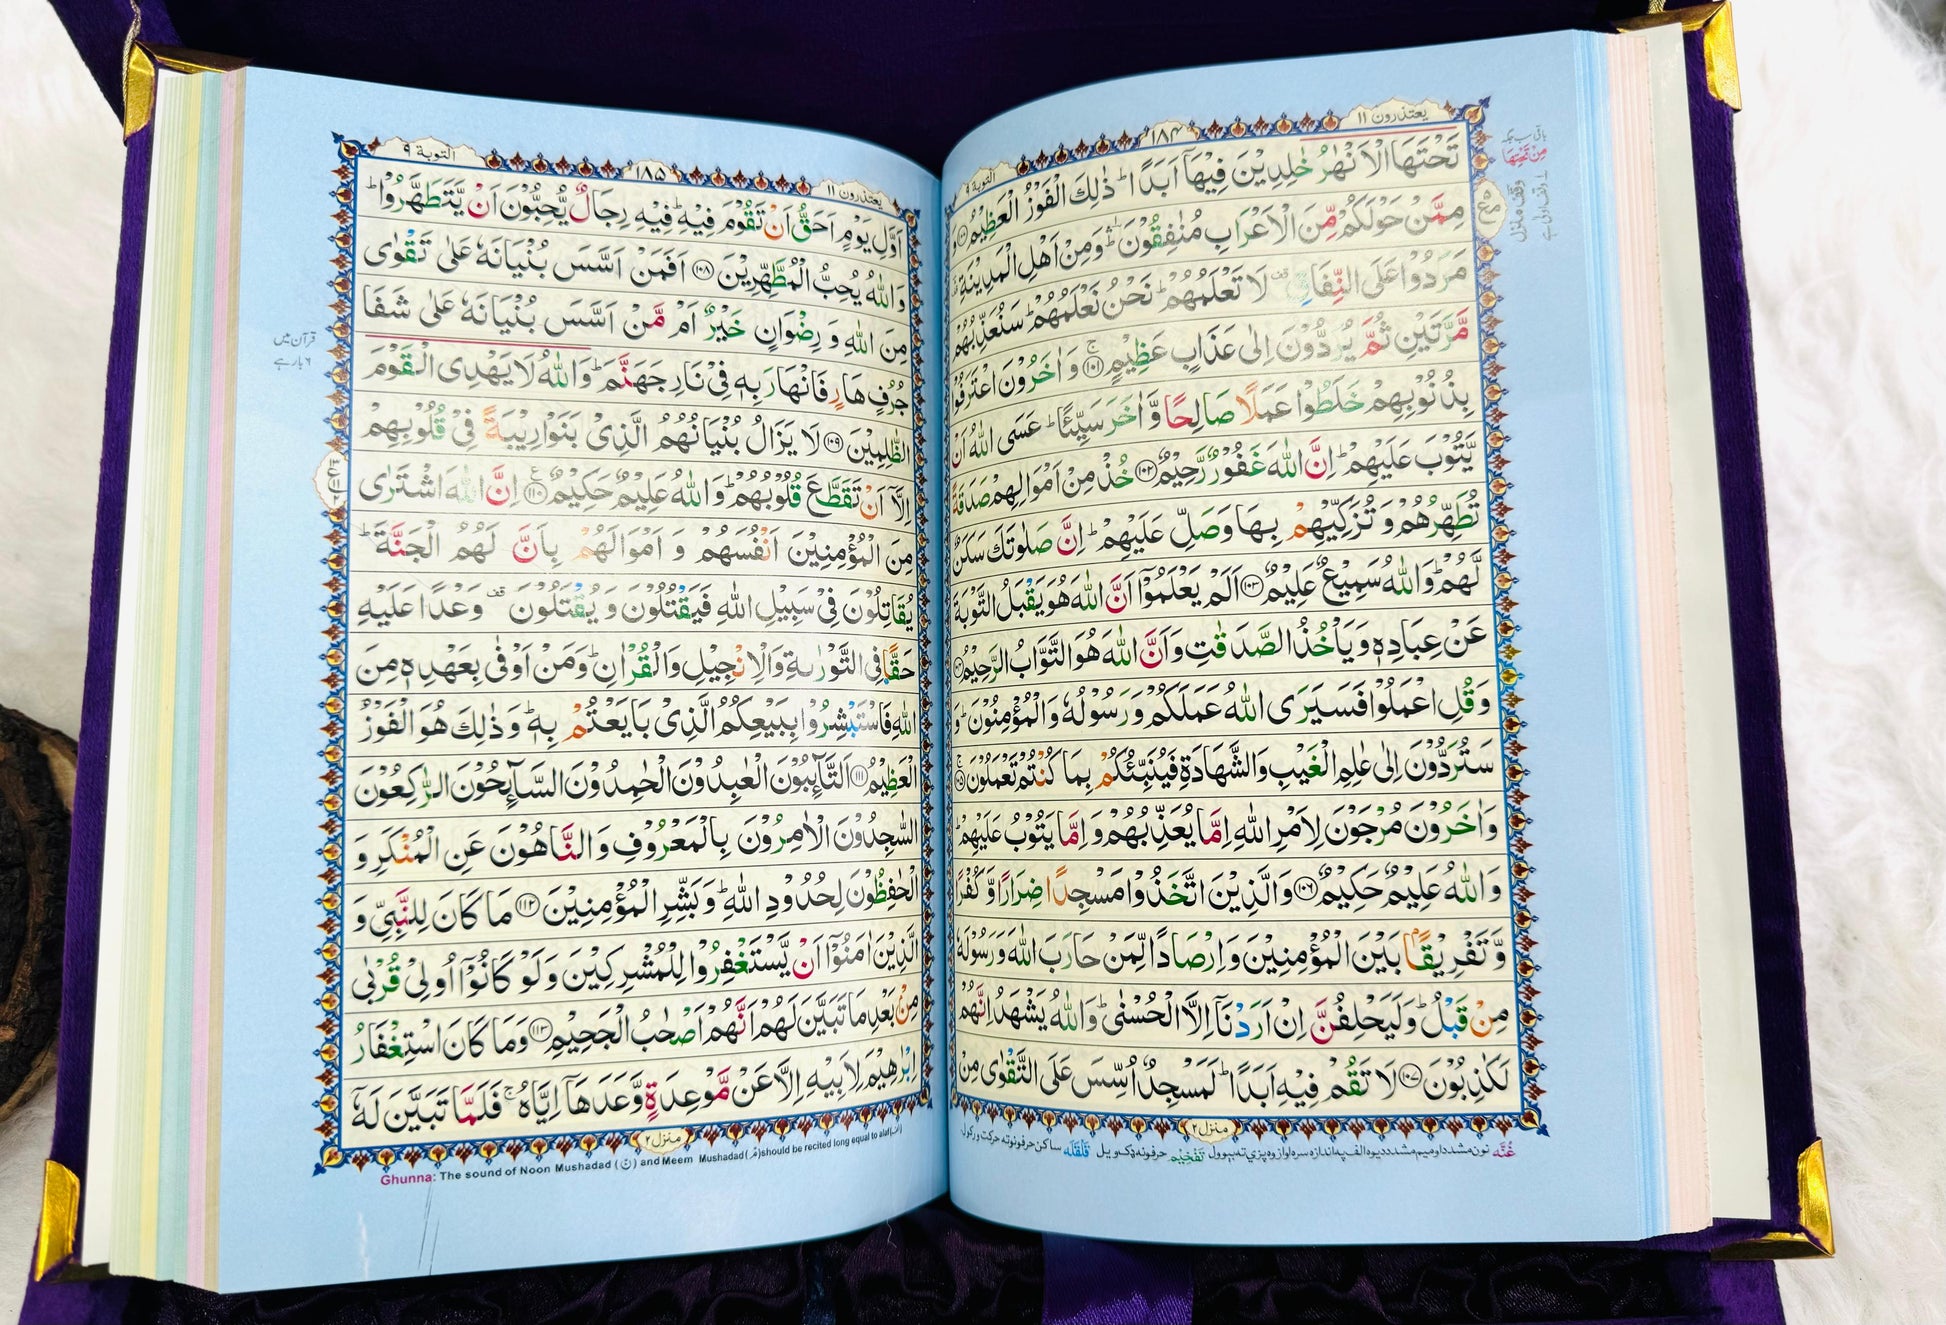 يعتذرون ١١
١٨٤
التوبة ٩
تَحْتَهَا الْاَنْهٰرُ خٰلِدِيْنَ فِيْهَاۤ اَبَدًا ؕ ذٰلِكَ الْفَوْزُ الْعَظِيْمُ ۝١٠٠ وَ
مِمَّنْ حَوْلَكُمْ مِّنَ الْاَعْرَابِ مُنٰفِقُوْنَ ؕ وَمِنْ اَهْلِ الْمَدِيْنَةِ
مَرَدُوْا عَلَى النِّفَاقِ قف لَا تَعْلَمُهُمْ ؕ نَحْنُ نَعْلَمُهُمْ ؕ سَنُعَذِّبُهُمْ
مَّرَّتَيْنِ ثُمَّ يُرَدُّوْنَ اِلٰى عَذَابٍ عَظِيْمٍ ۝١٠١ۚ وَ اٰخَرُوْنَ اعْتَرَفُوْا
بِذُنُوْبِهِمْ خَلَطُوْا عَمَلًا صَالِحًا وَّ اٰخَرَ سَيِّئًا ؕ عَسَى اللّٰهُ اَنْ
يَّتُوْبَ عَلَيْهِمْ ؕ اِنَّ اللّٰهَ غَفُوْرٌ رَّحِيْمٌ ۝١٠٢ خُذْ مِنْ اَمْوَالِهِمْ صَدَقَةً
تُطَهِّرُهُمْ وَ تُزَكِّيْهِمْ بِهَا وَصَلِّ عَلَيْهِمْ ؕ اِنَّ صَلٰوتَكَ سَكَنٌ
لَّهُمْ ؕ وَاللّٰهُ سَمِيْعٌ عَلِيْمٌ ۝١٠٣ اَلَمْ يَعْلَمُوْۤا اَنَّ اللّٰهَ هُوَ يَقْبَلُ التَّوْبَةَ
عَنْ عِبَادِهٖ وَيَاْخُذُ الصَّدَقٰتِ وَاَنَّ اللّٰهَ هُوَ التَّوَّابُ الرَّحِيْمُ ۝١٠٤
وَقُلِ اعْمَلُوْا فَسَيَرَى اللّٰهُ عَمَلَكُمْ وَرَسُوْلُهٗ وَالْمُؤْمِنُوْنَ ؕ وَ
سَتُرَدُّوْنَ اِلٰى عٰلِمِ الْغَيْبِ وَالشَّهَادَةِ فَيُنَبِّئُكُمْ بِمَا كُنْتُمْ تَعْمَلُوْنَ ۝١٠٥ۚ
وَاٰخَرُوْنَ مُرْجَوْنَ لِاَمْرِ اللّٰهِ اِمَّا يُعَذِّبُهُمْ وَ اِمَّا يَتُوْبُ عَلَيْهِمْ ؕ
وَاللّٰهُ عَلِيْمٌ حَكِيْمٌ ۝١٠٦ وَالَّذِيْنَ اتَّخَذُوْا مَسْجِدًا ضِرَارًا وَّكُفْرًا
وَّتَفْرِيْقًۢا بَيْنَ الْمُؤْمِنِيْنَ وَاِرْصَادًا لِّمَنْ حَارَبَ اللّٰهَ وَرَسُوْلَهٗ
مِنْ قَبْلُ ؕ وَلَيَحْلِفُنَّ اِنْ اَرَدْنَاۤ اِلَّا الْحُسْنٰى ؕ وَاللّٰهُ يَشْهَدُ اِنَّهُمْ
لَكٰذِبُوْنَ ۝١٠٧ لَا تَقُمْ فِيْهِ اَبَدًا ؕ لَمَسْجِدٌ اُسِّسَ عَلَى التَّقْوٰى مِنْ
منزل ٢
مِنْ تَحْتِهَا
وقف منزل
يعتذرون ١١
١٨٥
التوبة ٩
اَوَّلِ يَوْمٍ اَحَقُّ اَنْ تَقُوْمَ فِيْهِ ؕ فِيْهِ رِجَالٌ يُّحِبُّوْنَ اَنْ يَّتَطَهَّرُوْا ؕ
وَاللّٰهُ يُحِبُّ الْمُطَّهِّرِيْنَ ۝١٠٨ اَفَمَنْ اَسَّسَ بُنْيَانَهٗ عَلٰى تَقْوٰى
مِنَ اللّٰهِ وَ رِضْوَانٍ خَيْرٌ اَمْ مَّنْ اَسَّسَ بُنْيَانَهٗ عَلٰى شَفَا
جُرُفٍ هَارٍ فَانْهَارَ بِهٖ فِيْ نَارِ جَهَنَّمَ ؕ وَاللّٰهُ لَا يَهْدِى الْقَوْمَ
الظّٰلِمِيْنَ ۝١٠٩ لَا يَزَالُ بُنْيَانُهُمُ الَّذِيْ بَنَوْا رِيْبَةً فِيْ قُلُوْبِهِمْ
اِلَّاۤ اَنْ تَقَطَّعَ قُلُوْبُهُمْ ؕ وَاللّٰهُ عَلِيْمٌ حَكِيْمٌ ۝١١٠ اِنَّ اللّٰهَ اشْتَرٰى
مِنَ الْمُؤْمِنِيْنَ اَنْفُسَهُمْ وَ اَمْوَالَهُمْ بِاَنَّ لَهُمُ الْجَنَّةَ ؕ
يُقَاتِلُوْنَ فِيْ سَبِيْلِ اللّٰهِ فَيَقْتُلُوْنَ وَ يُقْتَلُوْنَ قف وَعْدًا عَلَيْهِ
حَقًّا فِي التَّوْرٰىةِ وَالْاِنْجِيْلِ وَالْقُرْاٰنِ ؕ وَمَنْ اَوْفٰى بِعَهْدِهٖ مِنَ
اللّٰهِ فَاسْتَبْشِرُوْا بِبَيْعِكُمُ الَّذِيْ بَايَعْتُمْ بِهٖ ؕ وَذٰلِكَ هُوَ الْفَوْزُ
الْعَظِيْمُ ۝١١١ اَلتَّآئِبُوْنَ الْعٰبِدُوْنَ الْحٰمِدُوْنَ السَّآئِحُوْنَ الرّٰكِعُوْنَ
السّٰجِدُوْنَ الْاٰمِرُوْنَ بِالْمَعْرُوْفِ وَ النَّاهُوْنَ عَنِ الْمُنْكَرِ وَ
الْحٰفِظُوْنَ لِحُدُوْدِ اللّٰهِ ؕ وَبَشِّرِ الْمُؤْمِنِيْنَ ۝١١٢ مَا كَانَ لِلنَّبِيِّ وَ
الَّذِيْنَ اٰمَنُوْۤا اَنْ يَّسْتَغْفِرُوْا لِلْمُشْرِكِيْنَ وَلَوْ كَانُوْۤا اُولِيْ قُرْبٰى
مِنْۢ بَعْدِ مَا تَبَيَّنَ لَهُمْ اَنَّهُمْ اَصْحٰبُ الْجَحِيْمِ ۝١١٣ وَمَا كَانَ اسْتِغْفَارُ
اِبْرٰهِيْمَ لِاَبِيْهِ اِلَّا عَنْ مَّوْعِدَةٍ وَّعَدَهَاۤ اِيَّاهُ ۚ فَلَمَّا تَبَيَّنَ لَهٗۤ
منزل ٢
Ghunna: The sound of Noon Mushadad (نّ) and Meem Mushadad (مّ) should be recited long equal to alaf (الف)
قرآن میں
٦ بار ہے